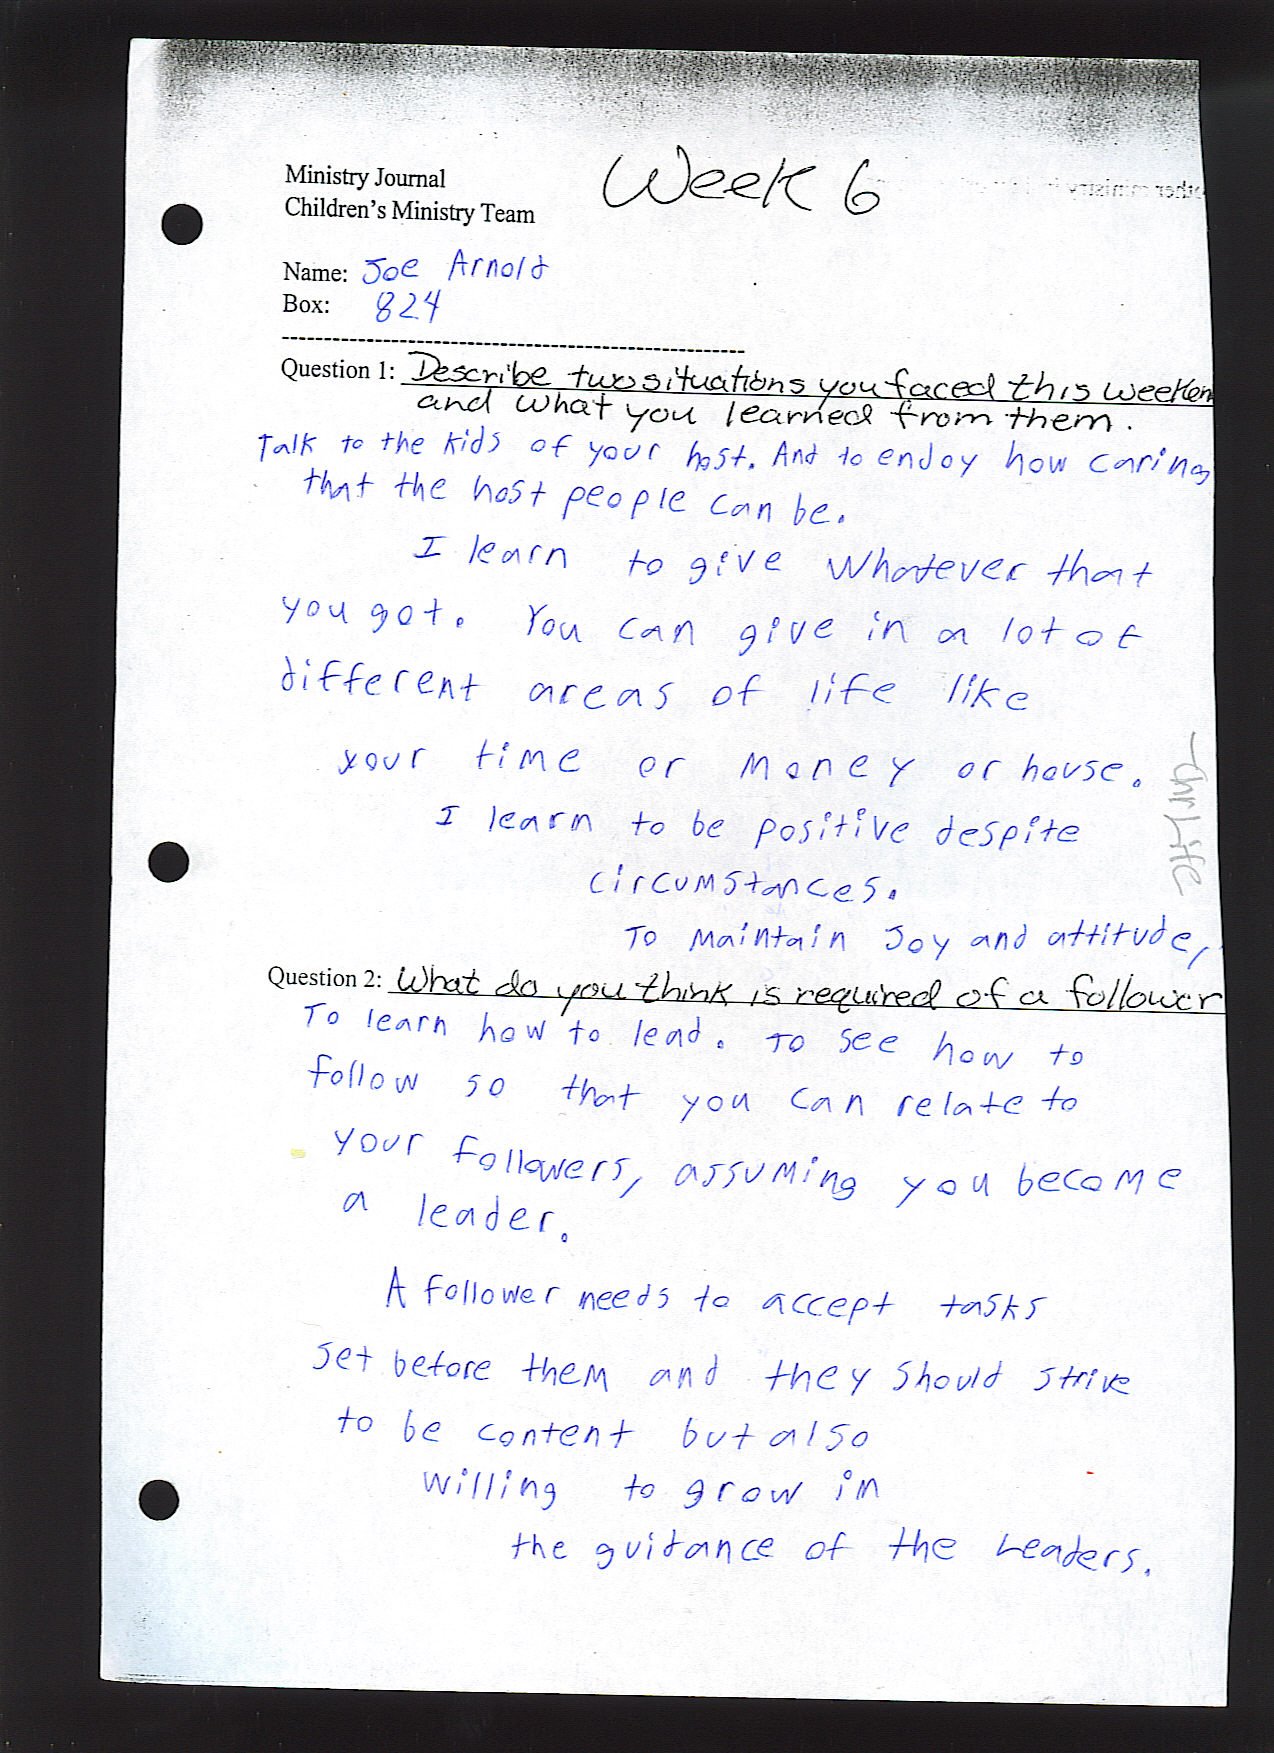 Week 6
Ministry Journal
Children's Ministry Team
Name: Joe Arnold
Box: 824
Question 1: Describe two situations you faced this weeken
and what you learned from them.
Talk to the kids of your host. And to enjoy how caring
that the host people can be.
I learn to give whatever that
you got. You can give in a lot of
different areas of life like
your time or money or house.
I learn to be positive despite
circumstances.
To maintain Joy and attitude,
Question 2: What do you think is required of a follower
To learn how to lead. To see how to
follow so that you can relate to
your followers, assuming you become
a leader.
A follower needs to accept tasks
set before them and they should strive
to be content but also
willing to grow in
the guidance of the Leaders.
-chr Life